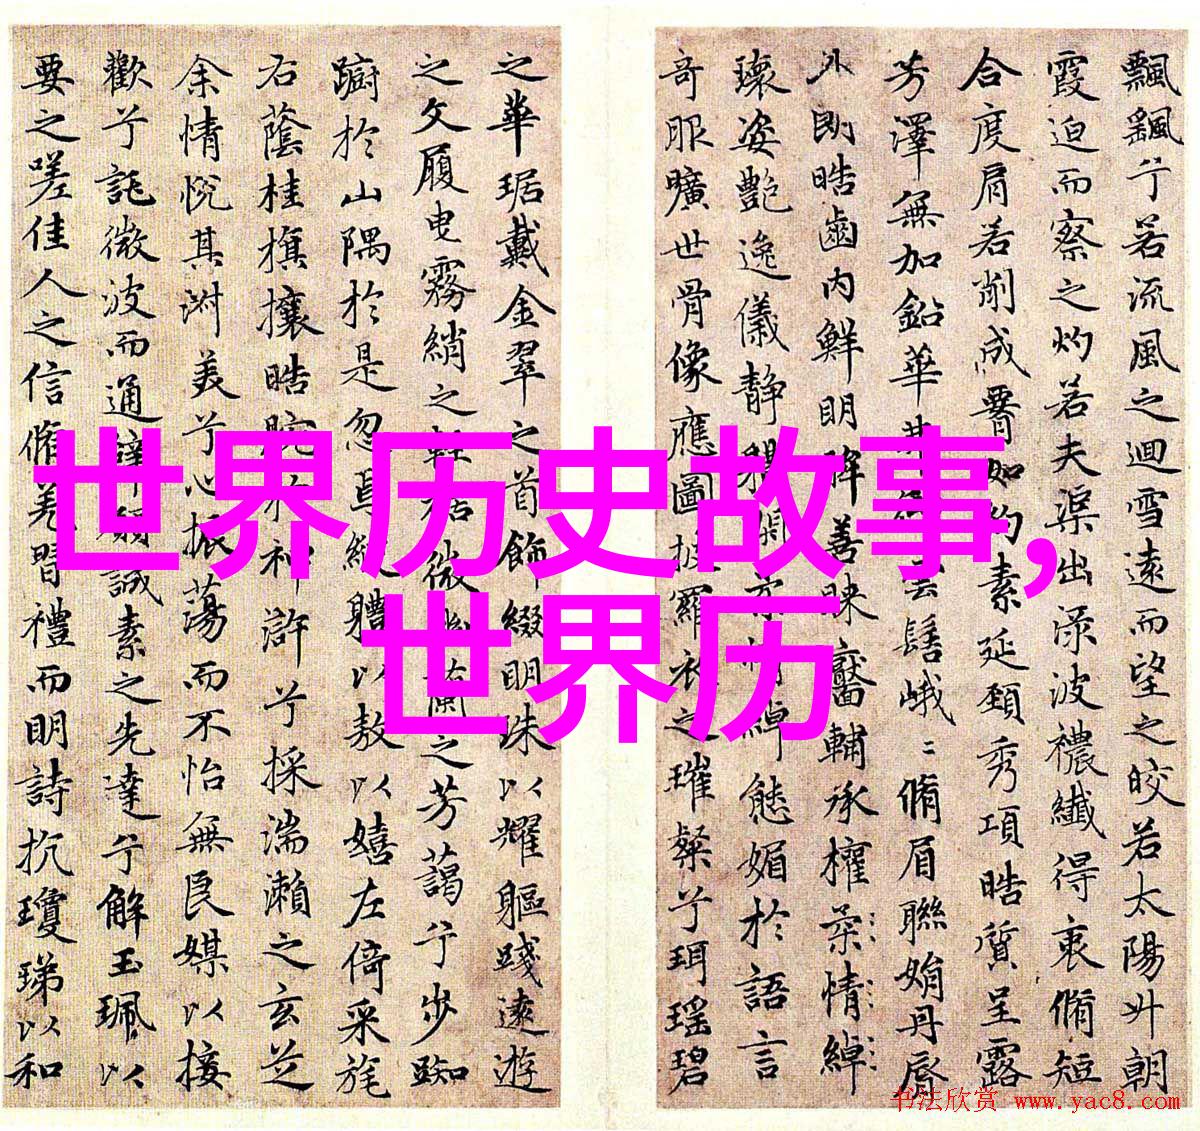 飄颻兮若流風之迴雪遠而望之皎若太陽升朝
霞迫而察之灼若夫渠出渌波襛纖得衷脩短
合度肩若削成𦝫如約素延頸秀項皓質呈露
芳澤無加鉛華雲髻峨〻脩眉聯娟丹脣
外朗皓齒内鮮明眸善睞靨輔承權柔情綽
瓌姿艷逸儀静情綽態媚於語言
奇服曠世骨像應圖披羅衣之璀粲兮珥瑤碧
之華琚戴金翠之首飾綴明珠以耀軀踐遠遊
之文履曳霧綃之輕裾微幽蘭之芳藹兮步踟
躕於山隅於是忽焉縱體以敖以嬉左倚采旄
右蔭桂旗攘皓腕於神滸兮採湍瀨之玄芝
余情悅其淑美兮心振蕩而不怡無良媒以接
歡兮託微波而通辭願誠素之先達兮解玉珮以
要之嗟佳人之信脩羌習禮而明詩抗瓊珶以和
世界历史故事,
世界历
书法欣赏 www.yac8.com